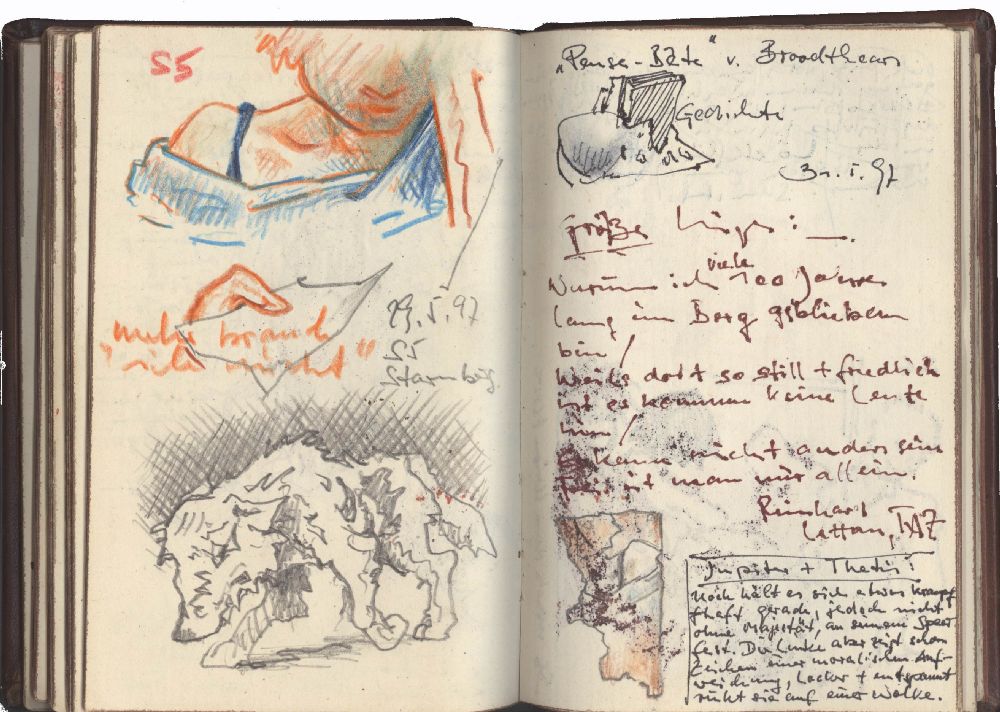 S5
29.5.97
S5
Starnbg.
mehr brauch
ich nicht"
"Pense-Bête" v. Broodthears
Gedichte
31.5.97
größe
Warum ich viele 100 Jahre
lang im Berg geblieben
bin!
Weils dort so still + friedlich
ist es kommen keine Leute
hin!
kann nicht anders sein
ist man nur allein.
Reinhart
TAZ
Jupiter + Thetis:
Noch hält es sich etwas krampf
fhaft gerade, jedoch nicht
ohne Majestät, an seinem Speer
fest. Die Linke aber zeigt schon
Zeichen einer moralischen Auf-
weichung, locker + entspannt
ruht sie auf einer Wolke.